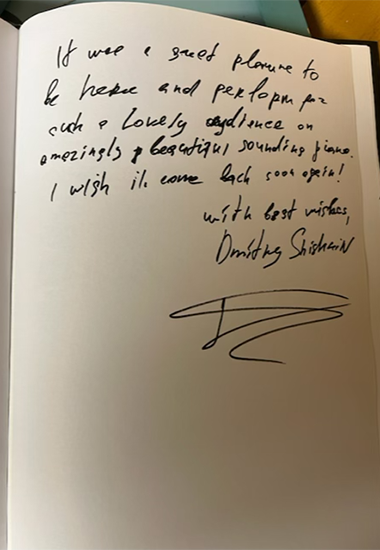 It was a great pleasure to
be here and perform for
such a lovely audience on
amazingly beautiful sounding piano.
I wish to come back soon again!
with best wishes,
Dmitry Shishkin